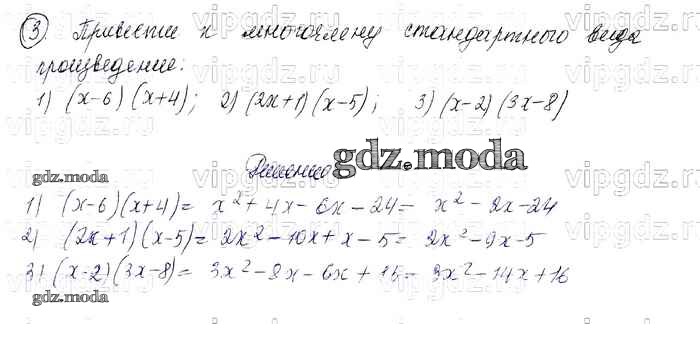 3 Привести к многочлену стандартного вида
произведение:
1) (x-6)(x+4); 2) (2x+1)(x-5); 3) (x-2)(3x-8)
Решение gdz.moda
gdz.moda
1) (x-6)(x+4) = x² + 4x - 6x - 24 = x² - 2x - 24
2) (2x+1)(x-5) = 2x² - 10x + x - 5 = 2x² - 9x - 5
3) (x-2)(3x-8) = 3x² - 8x - 6x + 16 = 3x² - 14x + 16
gdz.moda
vipgdz.ru